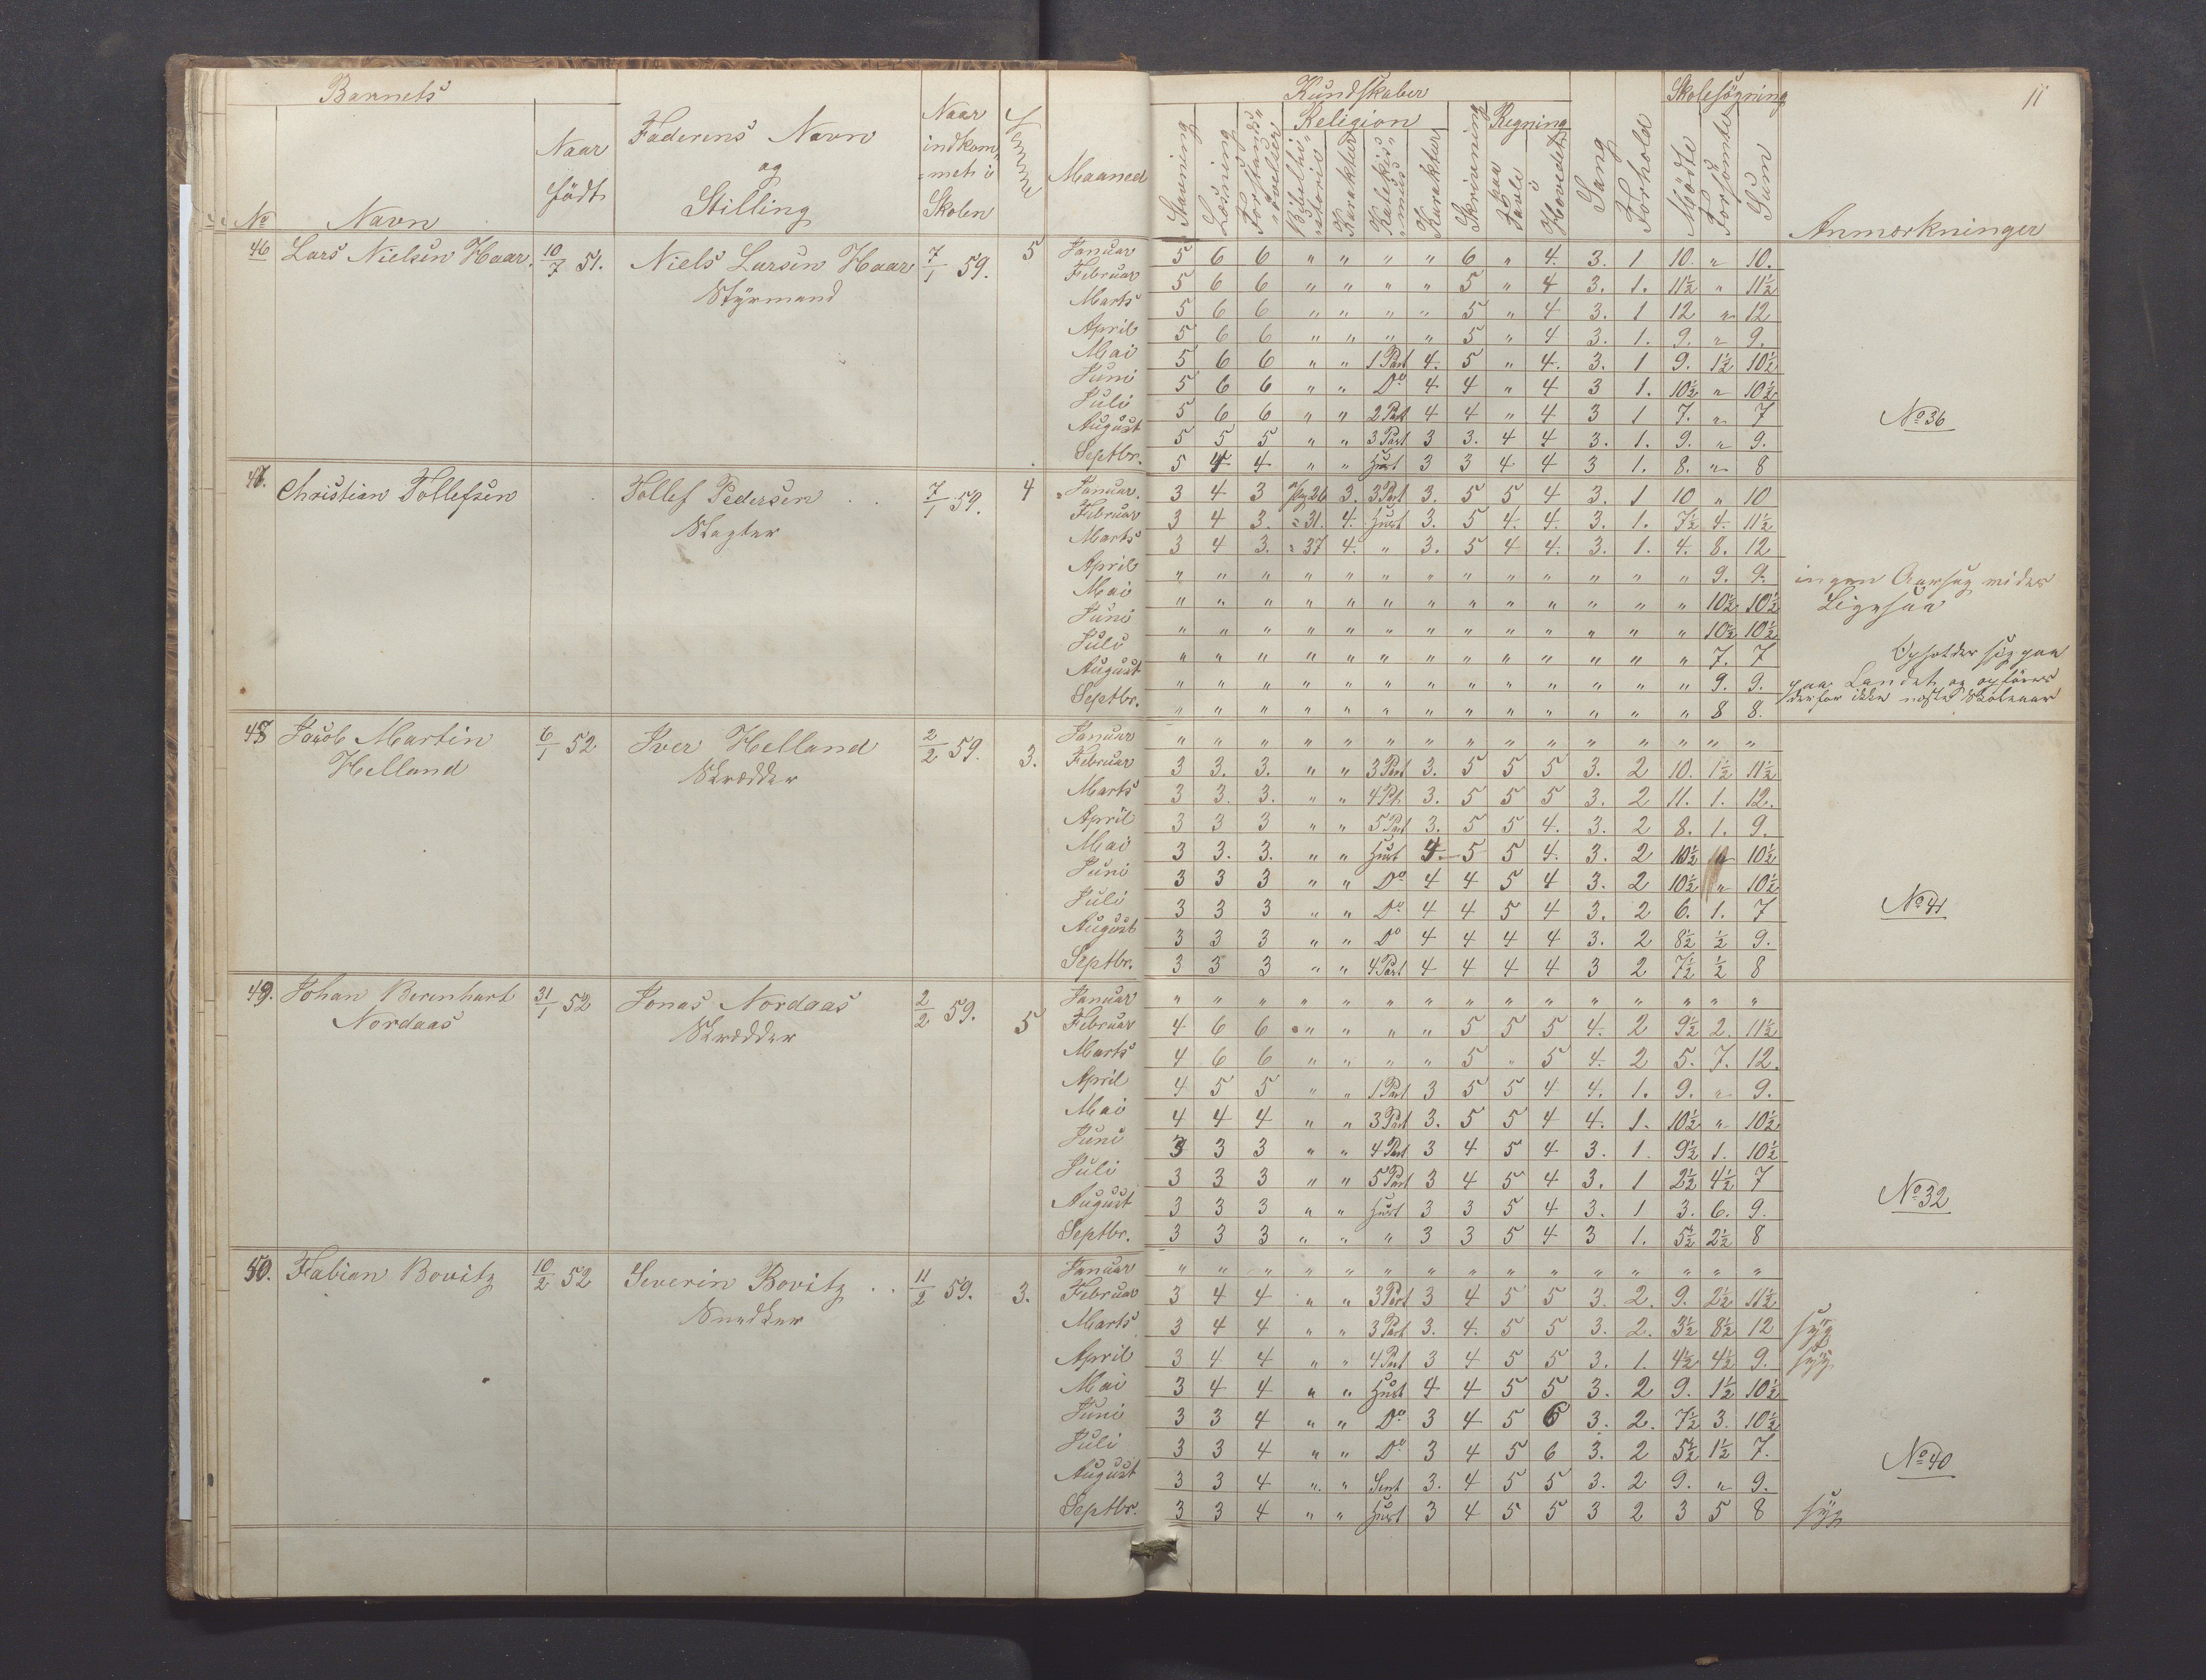 Barnets
Naar født
Faderens Navn og Stilling
Naar indkommet i Skolen
Evne
Maaned
Kundskaber
Skolesøgning
11
Religion
Regning
Stavning
Læsning
Bibelhistorie
Karakter
Katekismus
Karakter
Skrivning
Paa Tavle
i Hovedet
Sang
Forhold
Mødte
Forsømte
Sum
No
Navn
Anmærkninger
46 Lars Nielsen Haar 10/7 51. Niels Larsen Haar 7/1 59. 5
Styrmand
Januar 5 6 6 " " " " 6 " 4. 3. 1 10. " 10.
Februar 5 6 6 " " " " 5 " 4 3. 1. 11½ " 11½
Marts 5 6 6 " " " " 5 " 4 3. 1 12 " 12
April 5 6 6 " " " " 5 " 4 3. 1. 9. " 9.
Mai 5 6 6 " " 1 Part 4. 5 " 4. 3. 1 9. 1½ 10½
Juni 5 6 6 " " Do 4 4 " 4 3 1. 10½ " 10½
Juli 5 6 6 " " 2 Part 4 4 " 4 3 1 7. " 7
August 5 5 5 " " 3 Part 3 3. 4 4 3. 1. 9. " 9.
Septbr. 5 4 4 " " 3 3 4 4 3 1. 8. " 8
No 36
47. Christian Tollefsen Tollef Pedersen 7/1 59. 4
Slagter
Januar. 3 4 3 26 3. 3 Part 3. 5 5 4 3. 1 10 " 10
Februar 3 4 3. " 31. 4. 3. 5 4. 4. 3. 1. 7½ 4. 11½
Marts 3 4 3. " 37 4. " 3. 5 4 4. 3. 1. 4. 8. 12
April " " " " " " " " " " " " " 9. 9. ingen Aarsag
Mai " " " " " " " " " " " " " 10½ 10½ Ligesaa
Juni " " " " " " " " " " " " " 10½ 10½
Juli " " " " " " " " " " " " " 7. 7 Opholder sig paa
August " " " " " " " " " " " " " 9. 9. paa Landet og opføres
Septbr. " " " " " " " " " " " " " 8 8. derfor ikke næste Skoleaar
48 Jacob Martin 6/1 52 Iver Helland 2/2 59. 3.
Helland Skrædder
Januar " " " " " " " " " " " " " " "
Februar 3 3. 3. " " 3 Part 3. 5 5 5 3. 2 10. 1½ 11½
Marts 3 3. 3. " " 4 Pt. 3. 5 5 5 3. 2 11. 1. 12.
April 3 3 3 " " 5 Part 3. 5 5 4. 3. 2 8. 1. 9.
Mai 3 3. 3. " " 4. 5 5 4. 3. 2 10½ " 10½
Juni 3 3 3 " " Do 4 4 5 4 3. 2 10½ " 10½
Juli 3 3 3 " " Do 4 4 5 4 3. 2 6. 1. 7
August 3 3 3 " " Do 4 4 4 4 3. 2 8½ ½ 9.
Septbr. 3 3 3 " " 4 Part 4 4 4 4 3 2 7½ ½ 8
No 41
49. Johan Berenhart 31/1 52 Jonas Nordaas 2/2 59. 5
Nordaas Skrædder
Januar " " " " " " " " " " " " " " "
Februar 4 6 6 " " " " 5 5 5 4. 2 9½ 2. 11½
Marts 4 6 6 " " " " 5 " 5 4. 2 5. 7. 12.
April 4 5 5 " " 1 Part 3 5 5 4 4. 1. 9. " 9.
Mai 4 4 4 " " 3 Part 3. 5 5 4 4. 1. 10½ " 10½
Juni 3 3 3 " " 4 Part 3 4 5 4 3. 1. 9½ 1. 10½
Juli 3 3 3 " " 5 Part 3 4 5 4 3. 1 2½ 4½ 7
August 3 3 3 " " 3 3 5 4 3. 1 3. 6. 9.
Septbr. 3 3 3 " " " 3 3 5 4 3 1. 5½ 2½ 8
No 32
50. Fabian Bovitz 10/2 52 Severin Bovitz 11/2 59. 3.
Snedker
Januar " " " " " " " " " " " " " " "
Februar 3 4 4 " " 3 Part 3 4 5 5 3. 2. 9. 2½ 11½
Marts 3 4 4 " " 3 Part 3. 4. 5 5 3. 2. 3½ 8½ 12 syg
April 3 4 4 " " 4 Part 3 4 5 5 3. 1. 4½ 4½ 9. syg
Mai 3 4 4 " " 4 4 5 5 3. 2 9. 1½ 10½
Juni 3 3 4 " " Do 3 4 5 6 3. 2. 7½ 3. 10½
Juli 3 3 4 " " Do 3 4 5 6 3. 2 5½ 1½ 7.
August 3 3 4 " " 3. 4 5 5 3. 2 9. " 9.
Septbr. 3 3 4 " " 3 4 5 5 3 2 3 5 8 syg
No 40